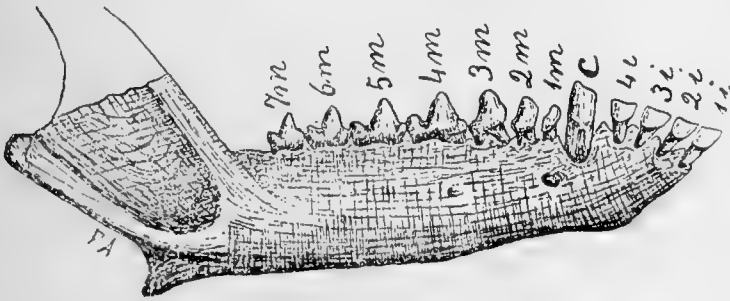 7m 6m 5m 4m 3m 2m 1m C 4i 3i 2i 1i